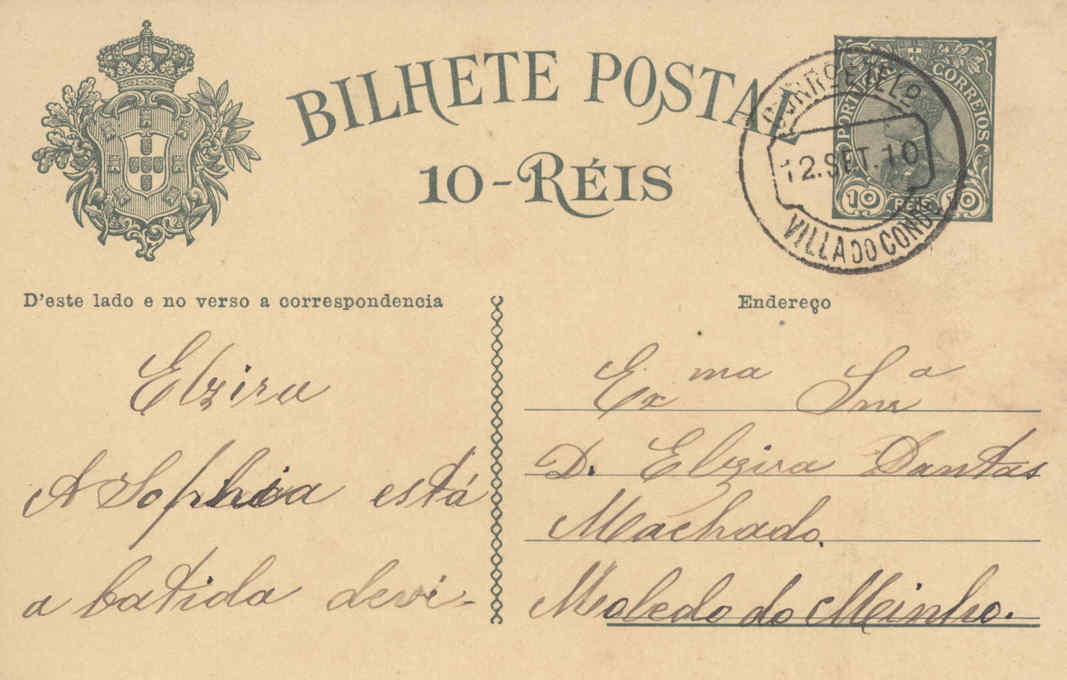 BILHETE POSTAL
10-RÉIS
PORTUGAL CORREIOS
10 REIS 10
12.SET.10
VILLA DO CONDE
D'este lado e no verso a correspondencia
Endereço
Elzira
A Sophia está
a batida devi-
Exma Snra
D. Elzira Dantas
Machado.
Moledo do Minho.